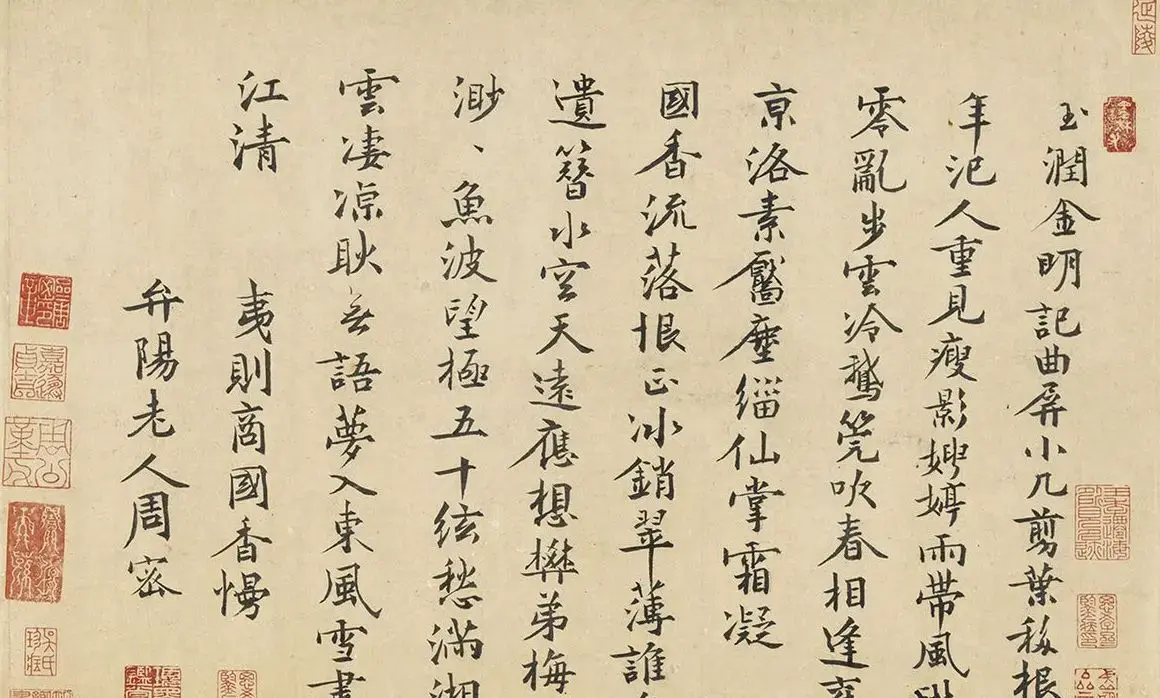 玉潤金明記曲屏小几剪葉移根
年汜人重見瘦影娉婷雨帶風
零亂步雲冷鵞筦吹春相逢
京洛素靨塵緇仙掌霜凝
國香流落恨正冰銷翠薄誰
遺簪水空天遠應想礬弟梅
渺、魚波望極五十絃愁滿湘
雲凄凉耿無語夢入東風雪盡
江清
夷則商國香慢
弁陽老人周密